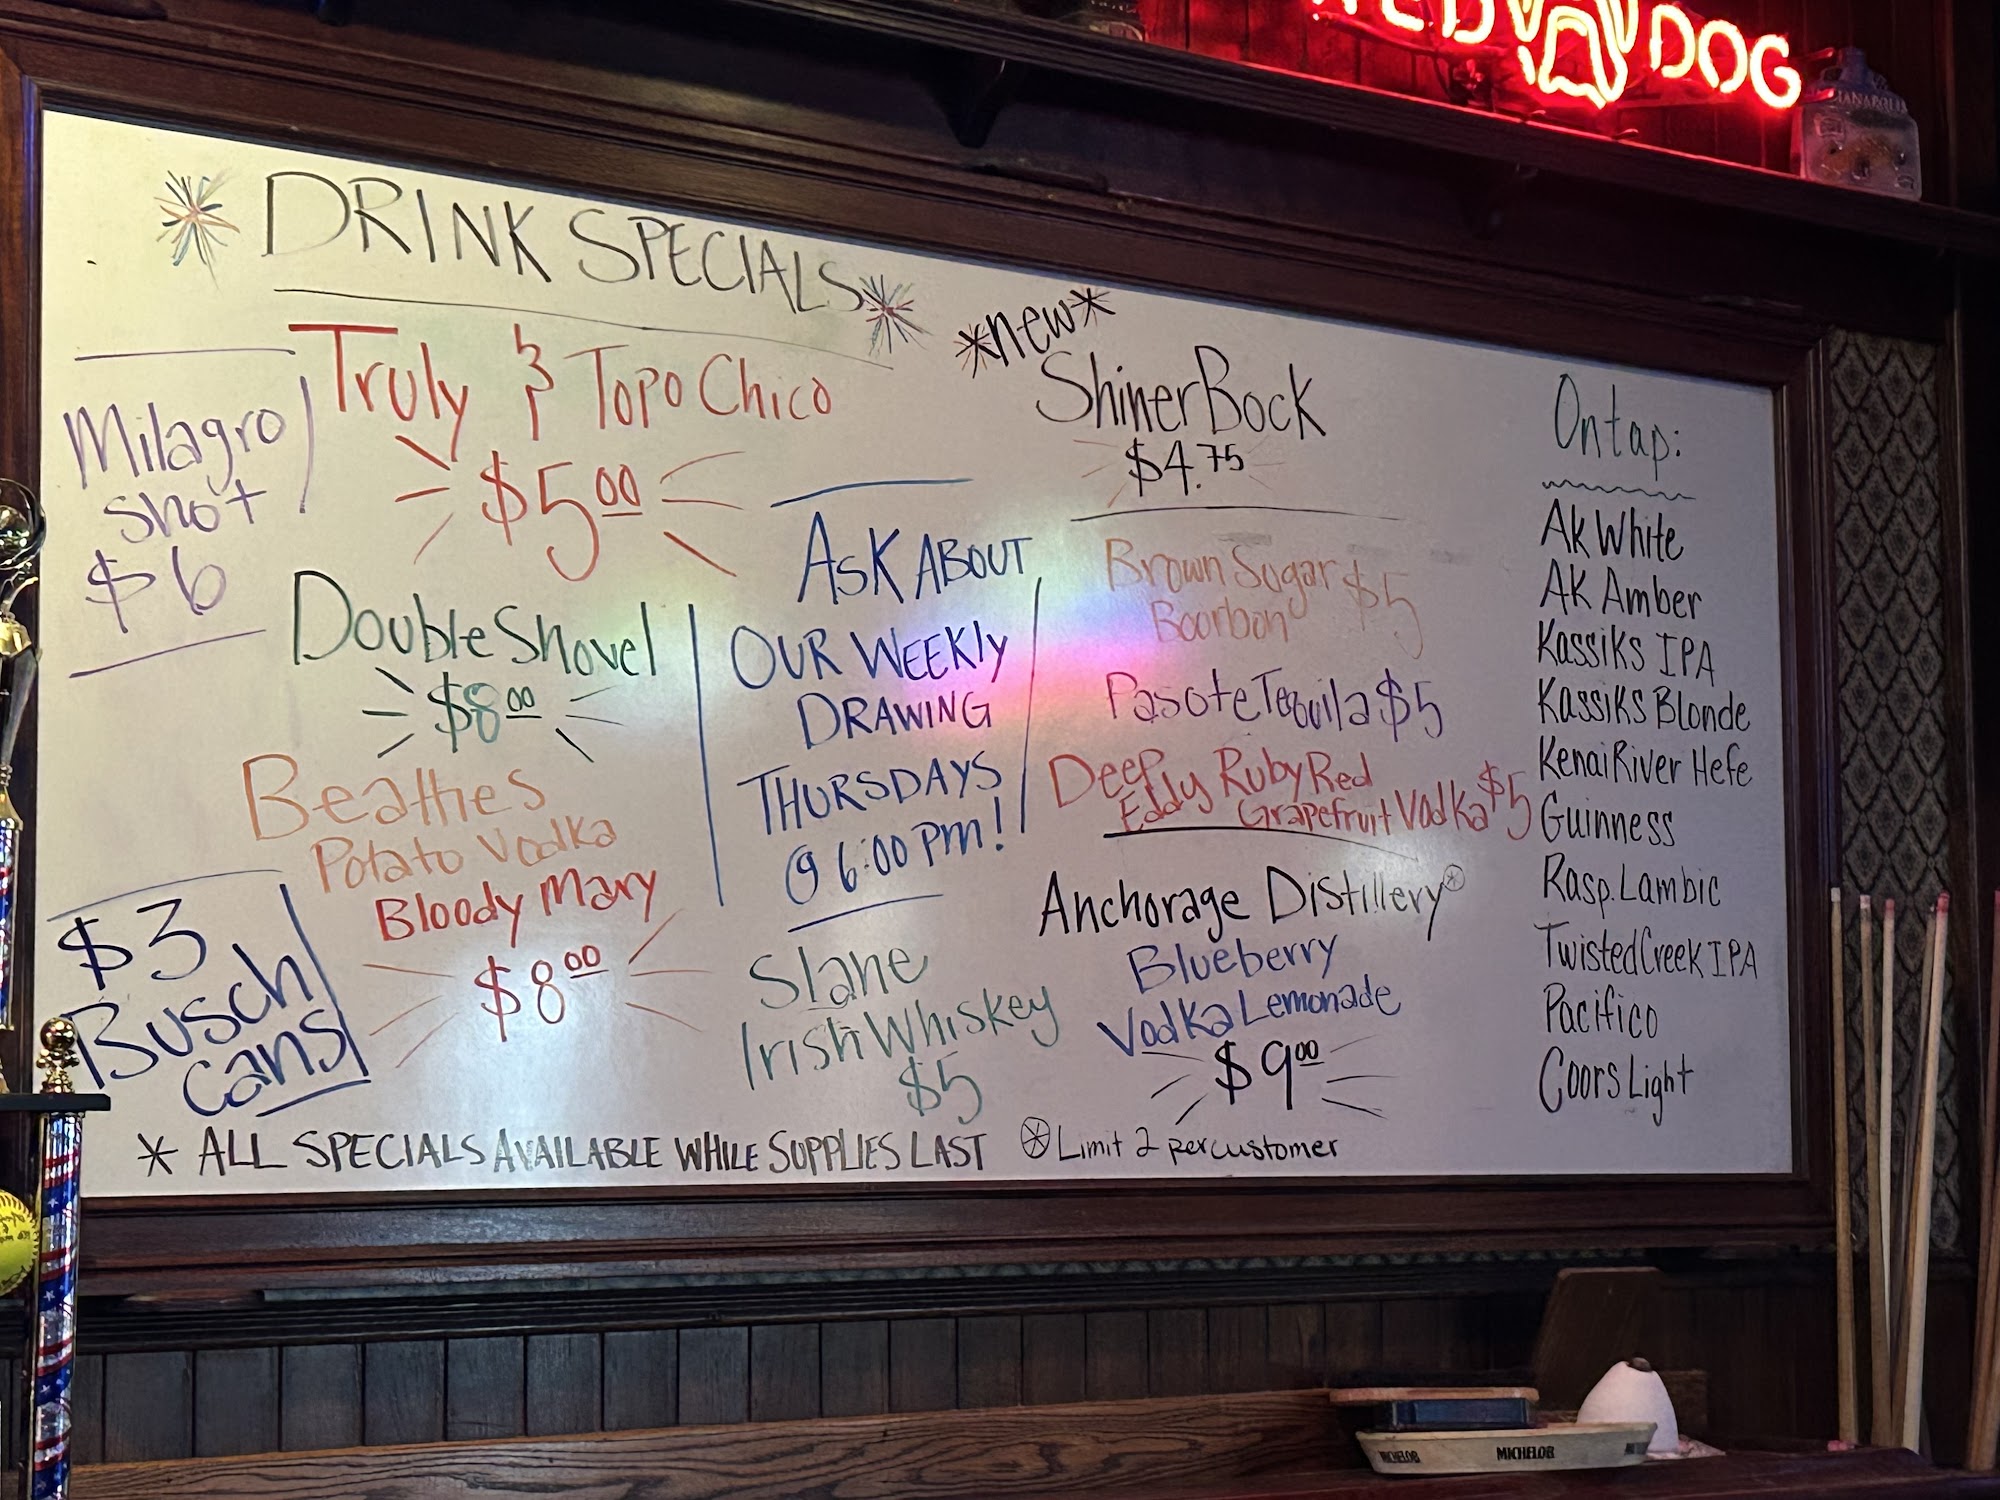 DOG
DRINK SPECIALS
Milagro
shot
$6
Truly & Topo Chico
$5.00
*new*
Shiner Bock
$4.75
Double Shovel
$8.00
Beatties
Potato Vodka
Bloody Mary
$8.00
$3
Busch
Cans
ASK ABOUT
OUR WEEKLY
DRAWING
THURSDAYS
@ 6:00 PM!
Slane
Irish Whiskey
$5
Brown Sugar $5
Boorbon
Pasote Tequila $5
Deep Ruby Red
Eddy Grapefruit Vodka $5
Anchorage Distillery*
Blueberry
Vodka Lemonade
$9.00
On tap:
AK White
AK Amber
Kassiks IPA
Kassiks Blonde
Kenai River Hefe
Guinness
Rasp. Lambic
Twisted Creek IPA
Pacifico
Coors Light
* ALL SPECIALS AVAILABLE WHILE SUPPLIES LAST
* Limit 2 per customer
MICHELOB MICHELOB